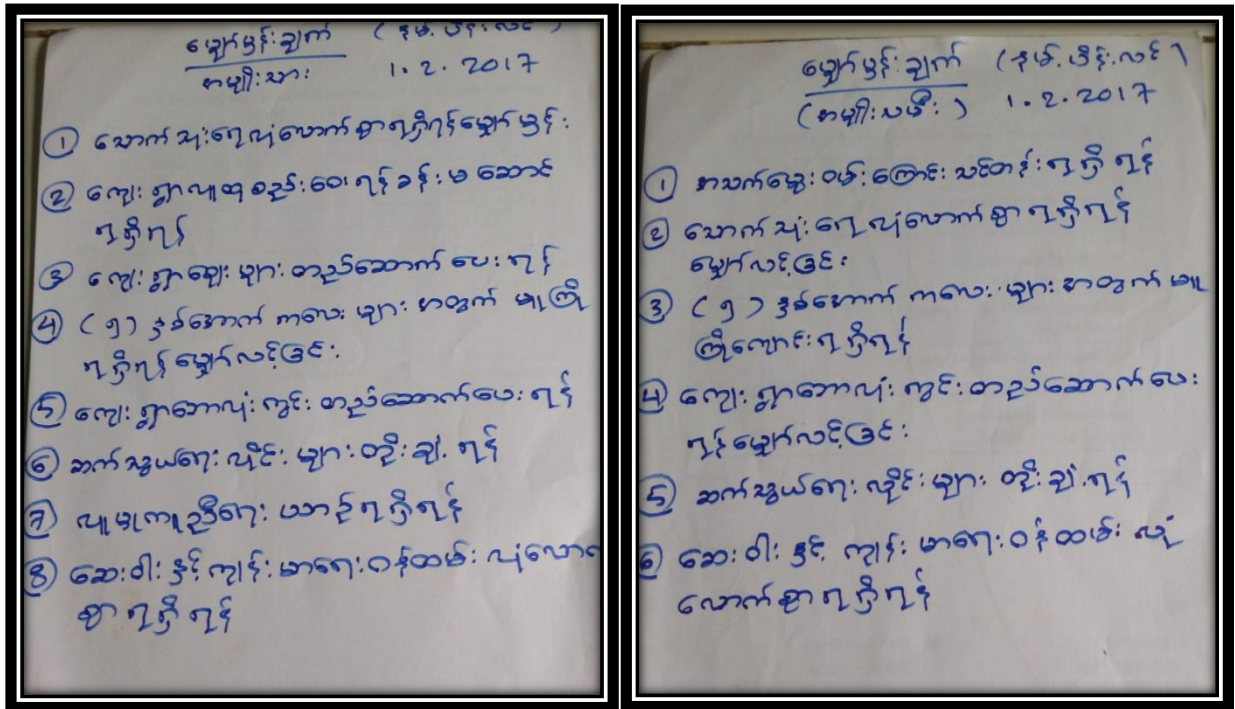 မျှော်မှန်းချက် (နမ့်.ဟိန်.လင်)
အမျိုးသား 1.2.2017
① သောက်သုံးရေလုံလောက်စွာရရှိရန်မျှော်မှန်း
② ကျေးရွာလူထုစည်းဝေးရန်ခန်းမဆောင်
ရရှိရန်
③ ကျေးရွာဈေးများတည်ဆောက်ပေးရန်
④ (၅) နှစ်အောက် ကလေးများအတွက် မူကြို
ရရှိရန်မျှော်လင့်ခြင်း
⑤ ကျေးရွာဘောလုံးကွင်းတည်ဆောက်ပေးရန်
⑥ ဆက်သွယ်ရေးလိုင်းများတိုးချဲ့ရန်
⑦ လူမှုကူညီရေးယာဉ်ရရှိရန်
⑧ ဆေးဝါးနှင့်ကျန်းမာရေးဝန်ထမ်းလုံလောက်
စွာရရှိရန်
မျှော်မှန်းချက် (နမ့်.ဟိန်.လင်)
(အမျိုးသမီး) 1.2.2017
① အသက်မွေးဝမ်းကြောင်းသင်တန်းရရှိရန်
② သောက်သုံးရေလုံလောက်စွာရရှိရန်
မျှော်လင့်ခြင်း
③ (၅) နှစ်အောက် ကလေးများအတွက် မူ
ကြိုကျောင်းရရှိရန်
④ ကျေးရွာဘောလုံးကွင်းတည်ဆောက်ပေး
ရန်မျှော်လင့်ခြင်း
⑤ ဆက်သွယ်ရေးလိုင်းများတိုးချဲ့ရန်
⑥ ဆေးဝါးနှင့်ကျန်းမာရေးဝန်ထမ်းလုံ
လောက်စွာရရှိရန်